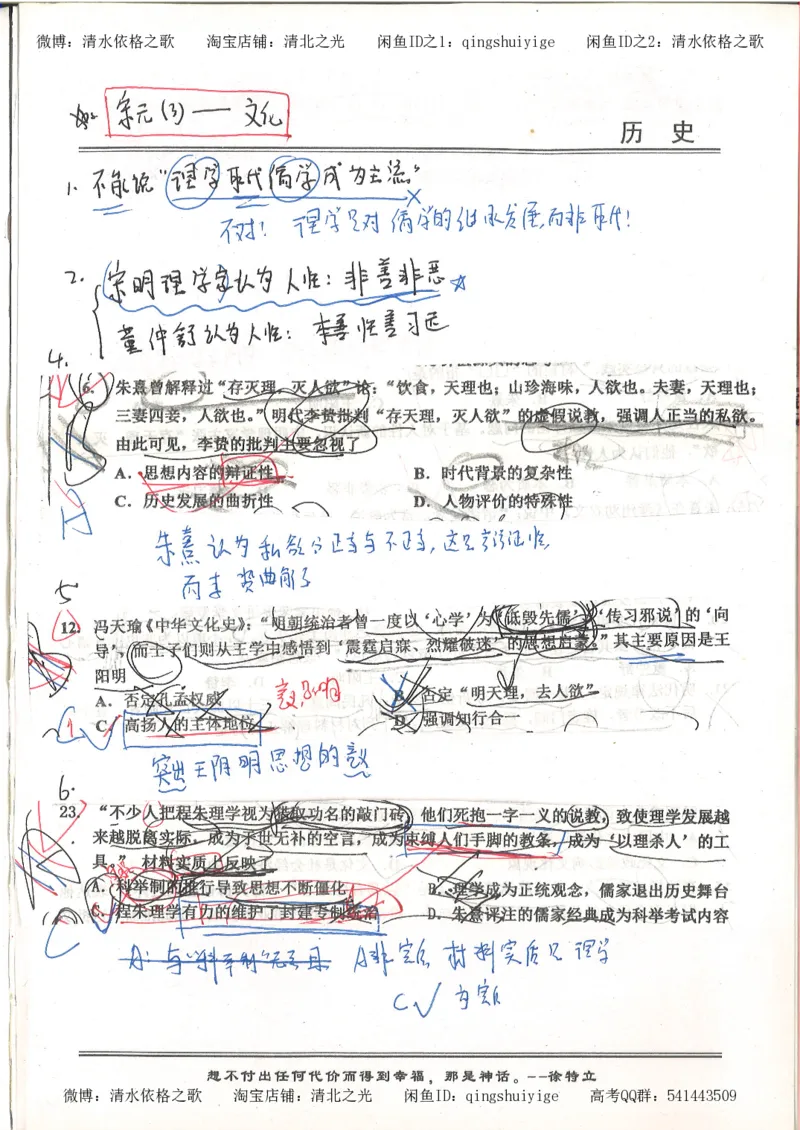 微博：清水依格之歌 淘宝店铺：清北之光 闲鱼ID之1：qingshuiyige 闲鱼ID之2：清水依格之歌
宋元(3)——文化
历 史
1. 不能说"理学取代儒学成为主流。"
不对！理学只对儒学的继承发展,而非取代！
2. 宋明理学家认为人性：非善非恶
董仲舒认为人性：本善性善习远
4.
6. 朱熹曾解释过“存天理，灭人欲”论：“饮食，天理也；山珍海味，人欲也。夫妻，天理也；
三妻四妾，人欲也。”明代李贽批判“存天理，灭人欲”的虚假说教，强调人正当的私欲。
由此可见，李贽的批判主要忽视了
A．思想内容的辩证性 B．时代背景的复杂性
C．历史发展的曲折性 D．人物评价的特殊性
朱熹认为私欲分正当与不正当,这是辩证性
而李贽曲解了
5
12. 冯天瑜《中华文化史》：“明朝统治者曾一度以‘心学’为‘诋毁先儒’‘传习邪说’的‘向
导’，而士子们则从王学中感悟到‘震霆启寐、烈耀破迷’的思想启蒙。”其主要原因是王
阳明
A．否定孔孟权威 B．否定“明天理，去人欲”
C．高扬人的主体地位 D．强调知行合一
突出王阳明思想的意义
6.
23. “不少人把程朱理学视为猎取功名的敲门砖，他们死抱一字一义的说教，致使理学发展越
来越脱离实际，成为于世无补的空言，成为束缚人们手脚的教条，成为‘以理杀人’的工
具。”材料实质上反映了
A．科举制的推行导致思想不断僵化 B．理学成为正统观念，儒家退出历史舞台
C．程朱理学有力的维护了封建专制统治 D．朱熹评注的儒家经典成为科举考试内容
A非实质 材料实质是理学
C√ 为实质
想不付出任何代价而得到幸福，那是神话。--徐特立
微博：清水依格之歌 淘宝店铺：清北之光 闲鱼ID：qingshuiyige 高考QQ群：541443509